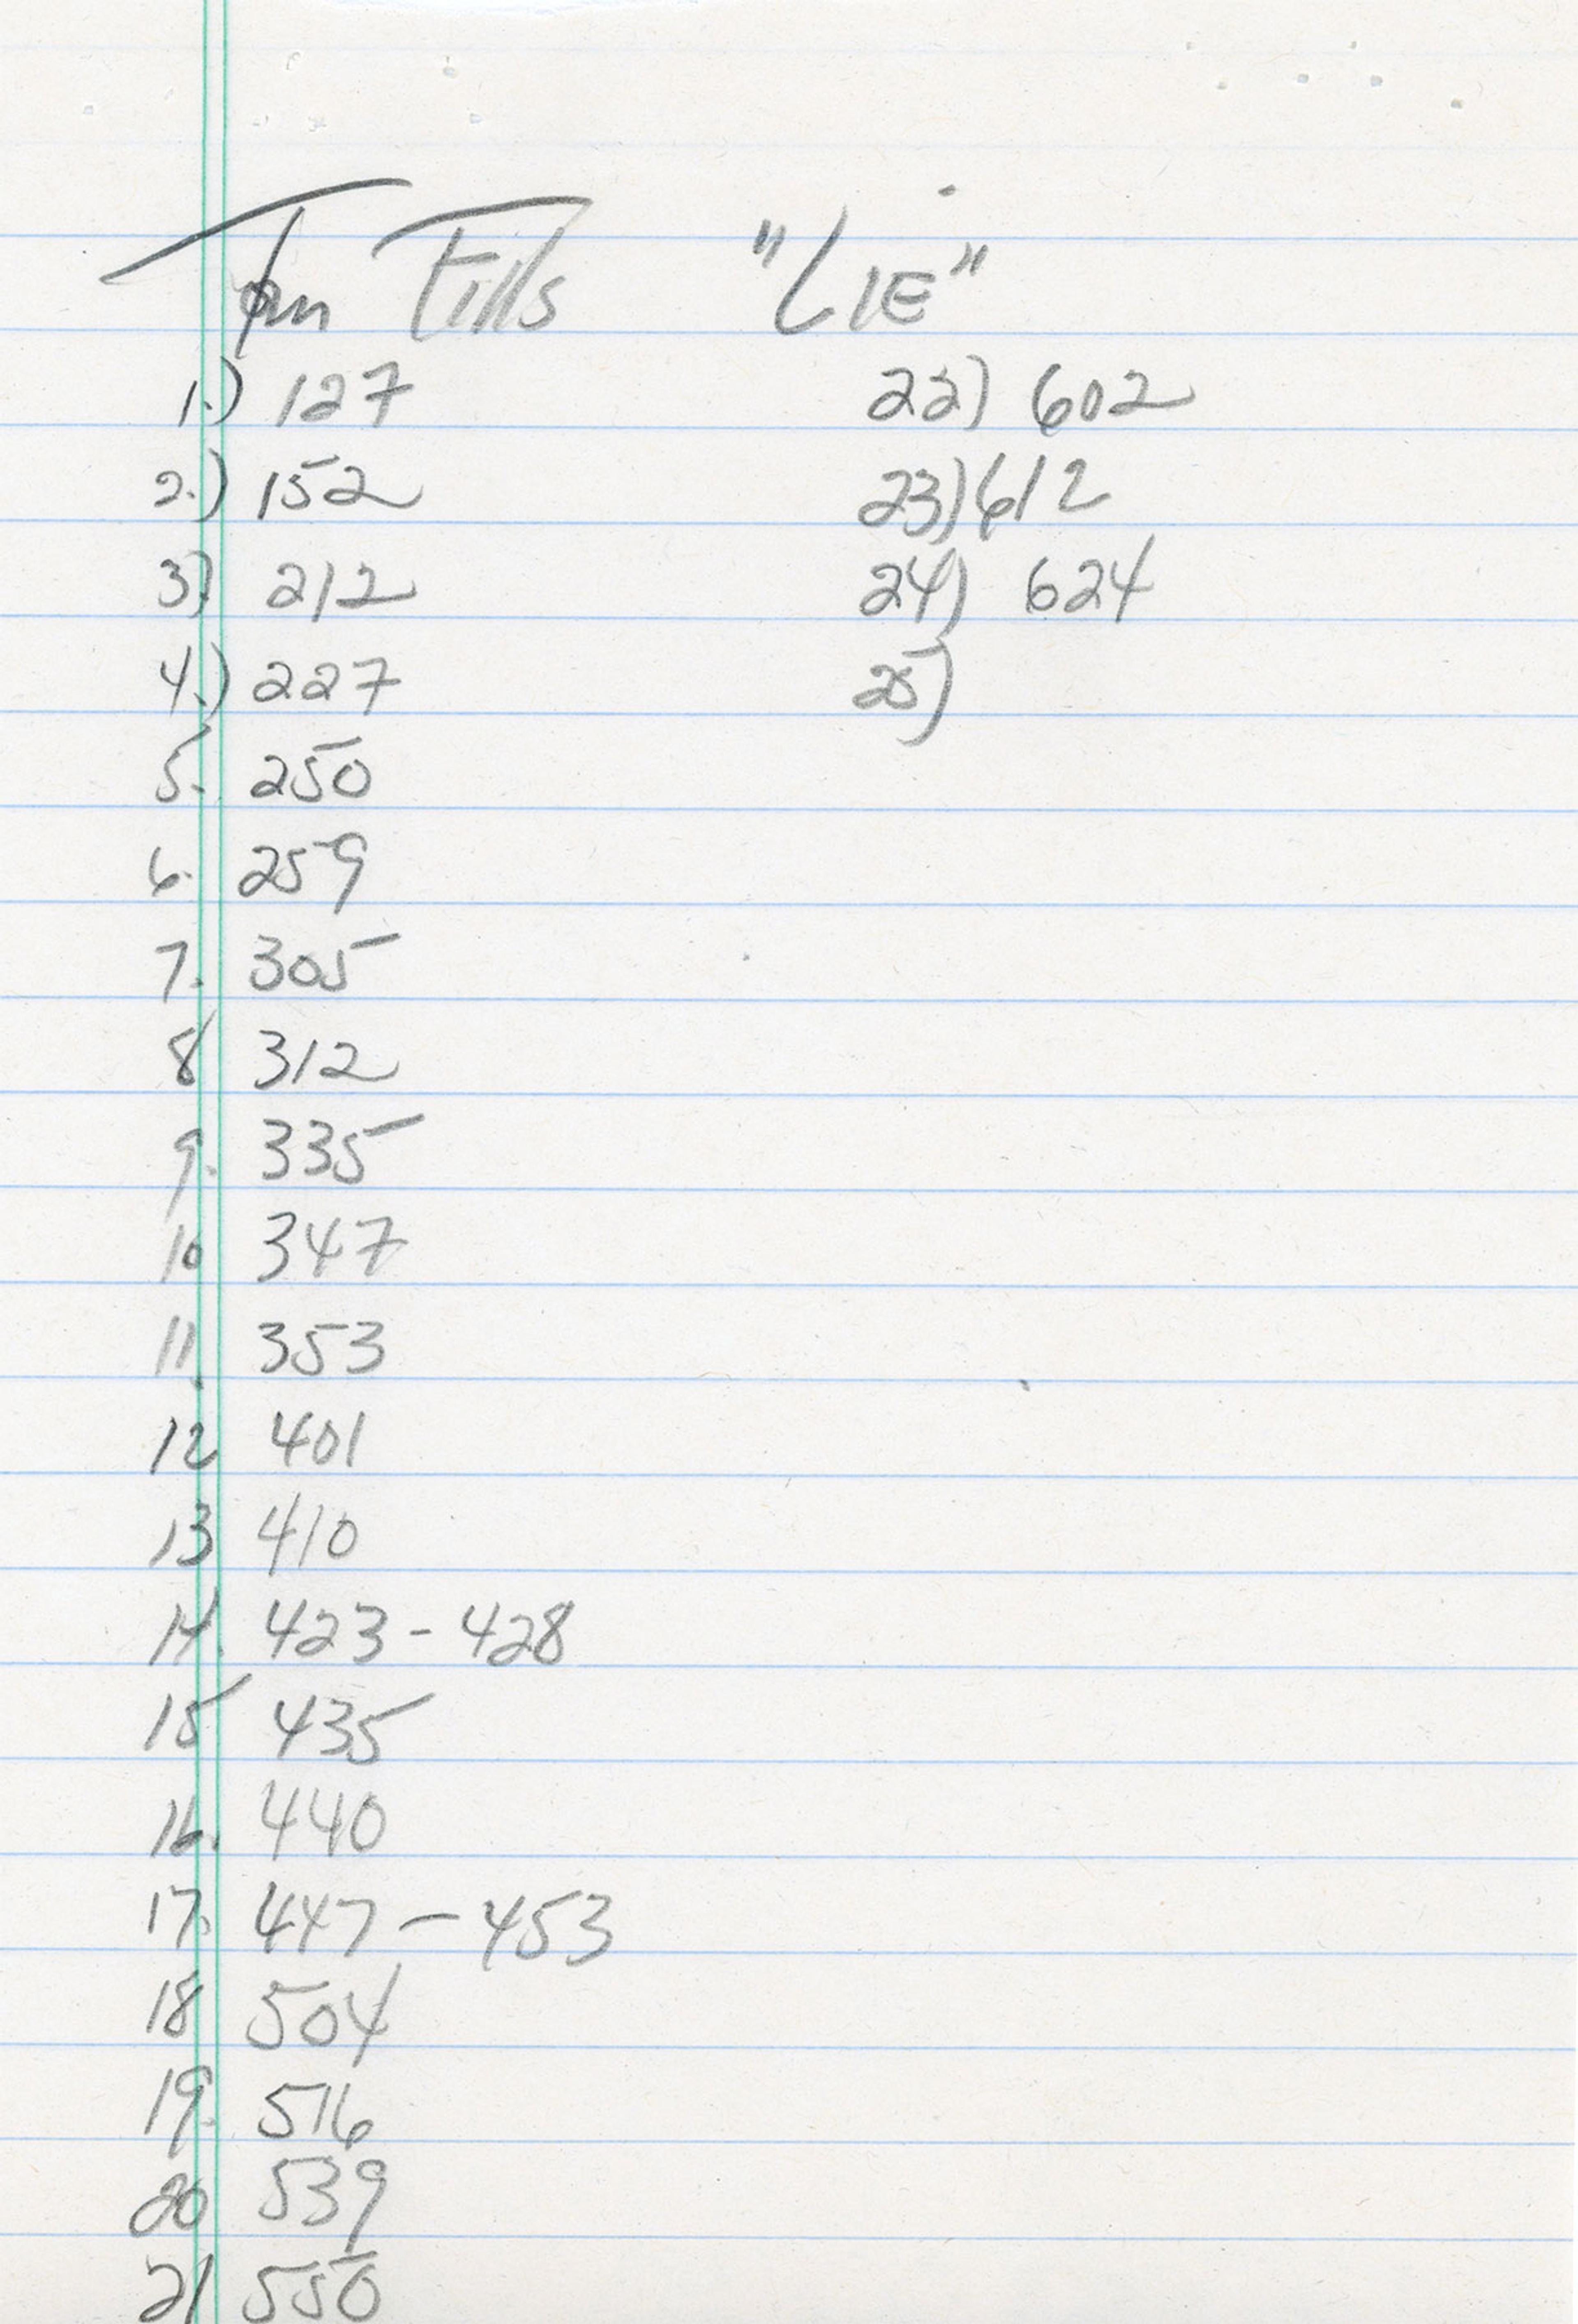 Tom Fills "LIE"
1.) 127
2.) 152
3) 212
4.) 227
5. 250
6. 259
7. 305
8 312
9. 335
10 347
11. 353
12 401
13 410
14. 423 - 428
15 435
16. 440
17. 447 - 453
18 504
19. 516
20 539
21 550
22) 602
23) 612
24) 624
25)